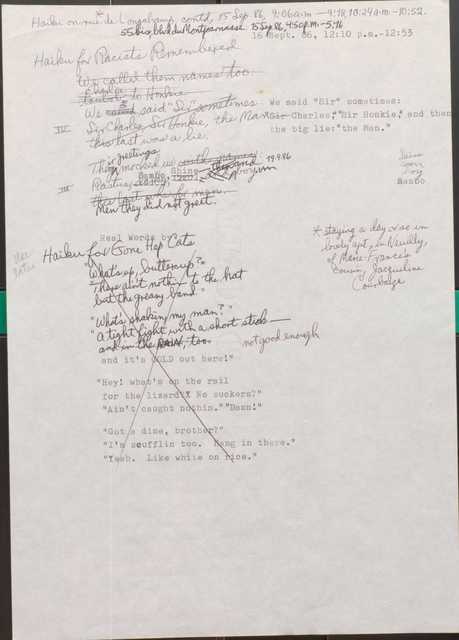 Haiku on rue de Longchamp, contd, 15 Sep. 86, 9:06 a.m. — 9:18, 10:24 a.m. - 10:52.
55 bis, blvd du Montparnasse 15 Sep 86, 4:50 p.m. - 5:16
16 Sept. 86, 12:10 p.m.-12:53
Haiku for Racists Remembered
We called them names too.
to Honkie
We said "Sir" sometimes
We said "Sir" sometimes:
IV Sir Charlie, Sir Honkie, the Man
Sir Charlie," "Sir Honkie," and then
this last was a lie.
the big lie: "the Man."
in greetings
They mocked us with names:
19.9.86
Sambo, Shine
III
Men they did not greet.
boy
Sambo
Real Words
Haiku for Gone Hep Cats
"What's up, buttercup?"
"They ain't nothin' to the hat
but the greasy band."
"What's shaking my man?"
"A tight fight with a short stick
and in the RAIN, too.
not good enough
and it's COLD out here!"
* staying a day or so in
lovely apt. in Neuilly,
of Marie-France's
cousin, Jacqueline
"Hey! what's on the rail
for the lizard? No suckers?"
"Ain't caught nothin." "Damn!"
"Got a dime, brother?"
"I'm scufflin too. Hang in there."
"Yeah. Like white on rice."